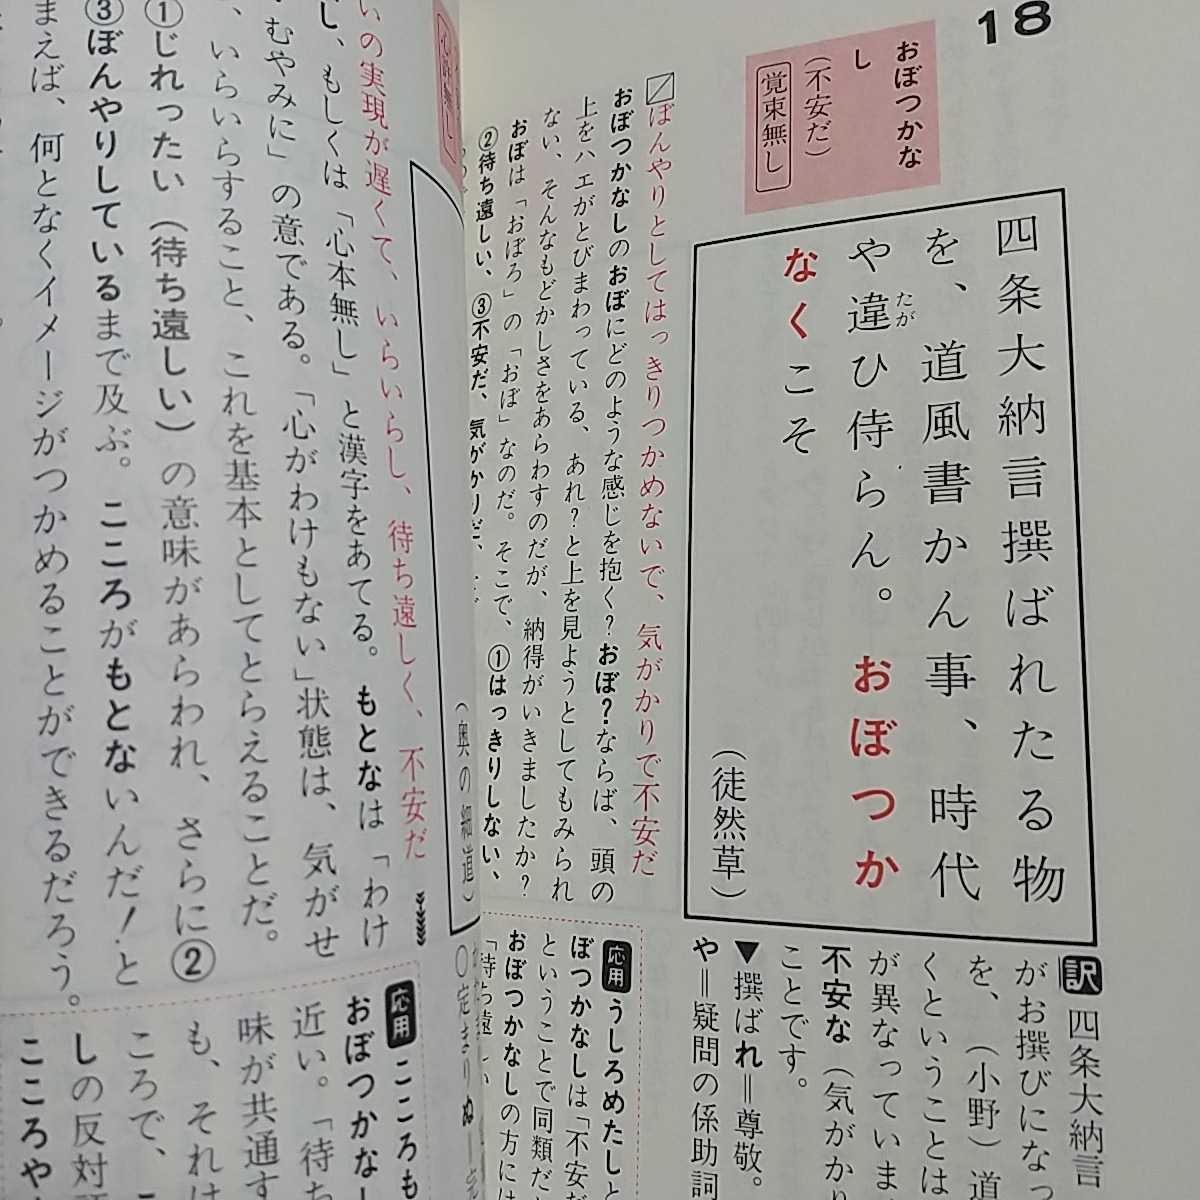 18
おぼつかな
し
(不安だ)
覚束無し
四条大納言撰ばれたる物
を、道風書かん事、時代
や違ひ侍らん。おぼつか
たが
なくこそ
(徒然草)
ぼんやりとしてはっきりつかめないで、気がかりで不安だ
おぼつかなしのおぼにどのような感じを抱く?おぼ?ならば、頭の
上をハエがとびまわっている、あれ?と上を見ようとしてもみられ
ない、そんなもどかしさをあらわすのだが、納得がいきましたか?
おぼは「おぼろ」の「おぼ」なのだ。そこで、①はっきりしない、
②待ち遠しい、③不安だ、気がかりだ、
訳 四条大納言
がお撰びになっ
を、(小野)道
くということは
が異なっていま
不安な(気がかり
ことです。
▼撰ばれ=尊敬。
や=疑問の係助詞
応用 うしろめたしと
ぼつかなしは「不安だ
ということで同類だと
おぼつかなしの方には
「待ち遠しい
(奥の細道)
○定まりぬ=完
いの実現が遅くて、いらいらし、待ち遠しく、不安だ
し、もしくは「心本無し」と漢字をあてる。もとなは「わけ
むやみに」の意である。「心がわけもない」状態は、気がせ
、いらいらすること、これを基本としてとらえることだ。
①じれったい(待ち遠しい)の意味があらわれ、さらに②
③ぼんやりしているまで及ぶ。こころがもとないんだ!と
まえば、何となくイメージがつかめることができるだろう。
応用 こころも
おぼつかなし
近い。「待ち
味が共通す
も、それは
ころで、こ
しの反対語
こころや